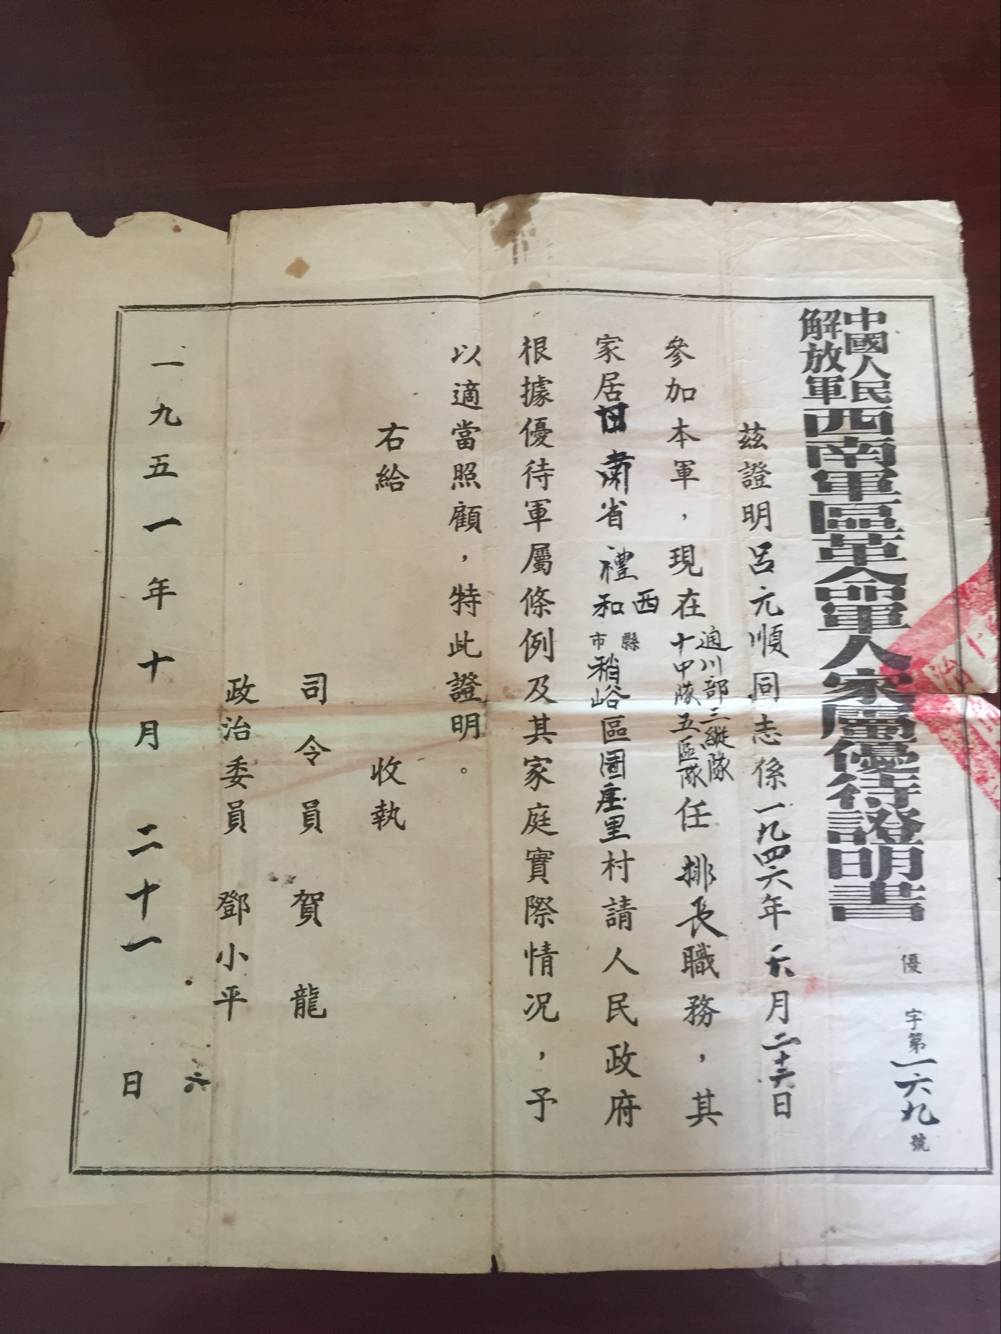 中國人民
解放軍
西南軍區革命軍人家屬優待證明書
優 字第一六九號
茲證明呂元順同志係一九四六年六月二十六日
參加本軍，現在
通川部三縱隊
十中隊五區隊
任排長職務，其
家居甘肅省
西
禮和
縣
市
稍峪區圄庄里村請人民政府
根據優待軍屬條例及其家庭實際情況，予
以適當照顧，特此證明。
右給 收執
司令員 賀龍
政治委員 鄧小平
一九五一年十月二十一日
六